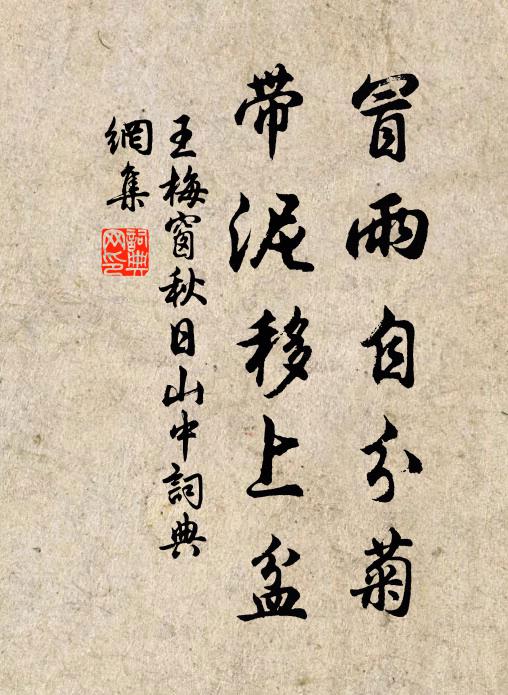 冒雨自分菊
带泥移上盆
王梅窗秋日山中詞典
網集
詞典网印